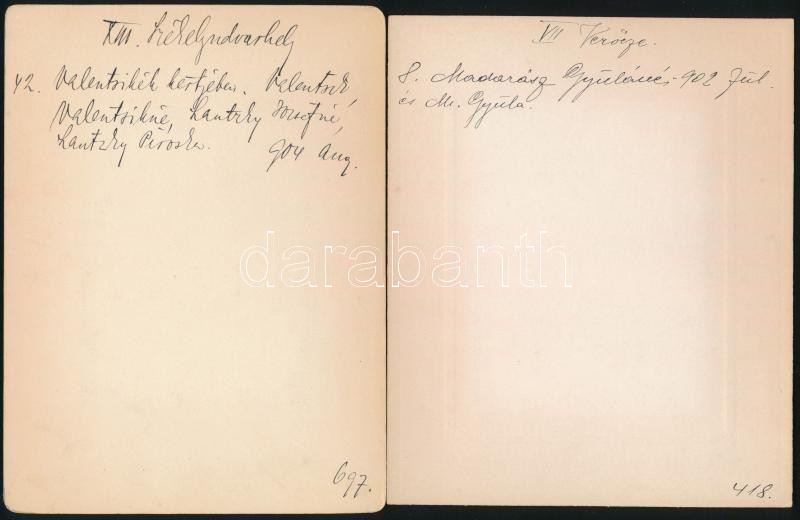 XIII. Székelyudvarhely
42. Valentsikék kertjében. Valentsik
Valentsikné, Lantzky Józsefné,
Lantzky Piroska. 904 Aug.
697.
VII Verőcze.
8. Madarász Gyuláné 902 Jul.
és M. Gyula.
418.
darabanth